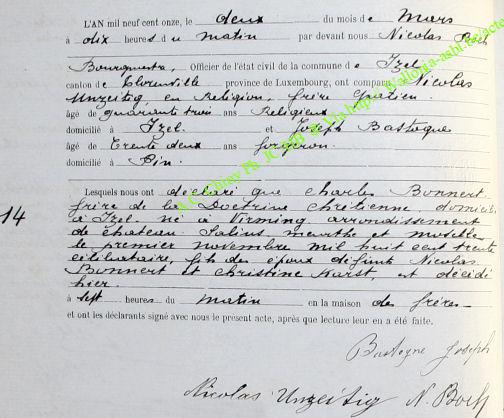 L'AN mil neuf cent onze, le deux du mois de Mars
à dix heures du matin par devant nous Nicolas
Bourgmestre, Officier de l'état civil de la commune de Izel
canton de Florenville province de Luxembourg, ont comparu Nicolas
Unzeitig, en Religion, frère Gratien
âgé de quarante trois ans Religieux
domicilié à Izel et Joseph Bastogne
âgé de Trente deux ans forgeron
domicilié à Pin
Lesquels nous ont déclaré que Charles Bonnert
frère de la Doctrine chrétienne domicilié
14
à Izel né à Virming arrondissement
de chateau Salins meurthe et moselle
le premier novembre mil huit cent trente
célibataire, fils des époux défunts Nicolas
Bonnert et christine Karst, est décédé
hier
à sept heures du matin en la maison des frères
et ont les déclarants signé avec nous le présent acte, après que lecture leur en a été faite.
Bastogne Joseph
Nicolas Unzeitig N.